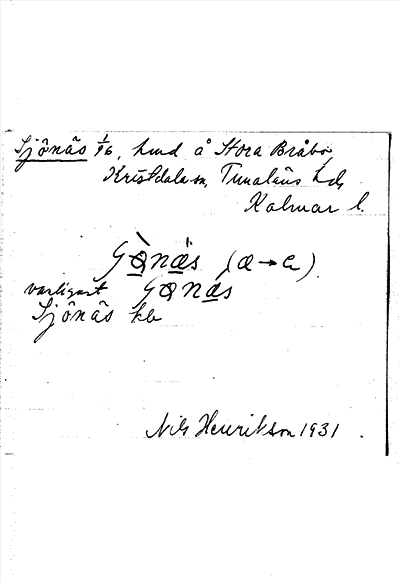 Sjönäs 1/96, hmd å Stora Bråbo,
Kristdala sn, Tunaläns hd,
Kalmar l.
(æ→a)
vanligast
Sjönäs kb
Nils Henrikson 1931.